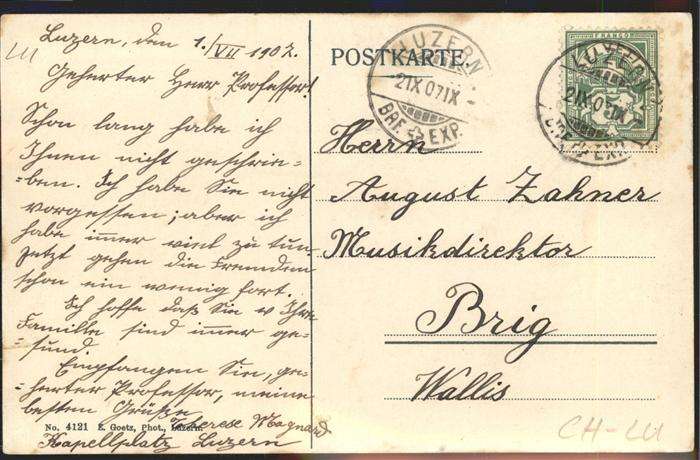 LU
Luzern, den 1./VII 1907.
Geherter Herr Professor!
Schon lang habe ich
Ihnen nicht geschrie-
-ben. Ich habe Sie nicht
vorgessen; aber ich
habe immer viel zu tun
Jetzt gehen die Fremden
schon ein wenig fort.
Ich hoffe daß Sie v Ihre
Familie sind imer ge-
-sund.
Empfangen Sie, ge-
-herter Professor, meine
besten Grüße
Therese Magnard
Kapellplatz Luzern
No. 4121 E. Goetz, Phot., Luzern.
POSTKARTE.
LUZERN
21 IX 07 IX
BRF. EXP.
FRANCO
LUZERN
21 IX 07 IX
BRF. EXP.
Herrn
August Zahner
Musikdirektor
Brig
Wallis
CH-LU